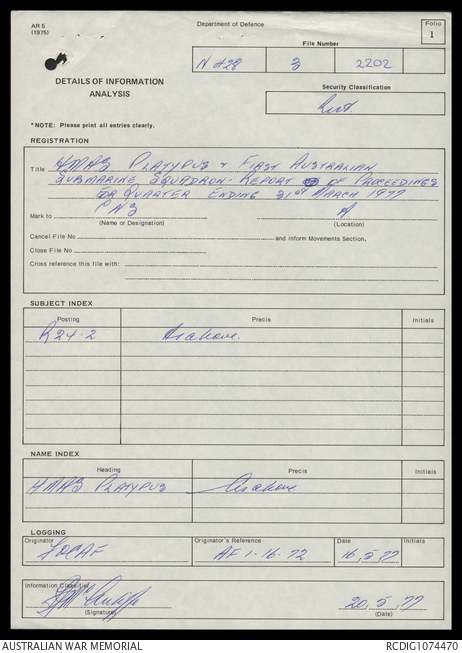 AR 5
(1975)
Department of Defence
Folio
1
File Number
N 428 3 2202
DETAILS OF INFORMATION
ANALYSIS
Security Classification
Rest.
*NOTE: Please print all entries clearly.
REGISTRATION
Title HMAS PLATYPUS & FIRST AUSTRALIAN
SUBMARINE SQUADRON - REPORT OF PROCEEDINGS
FOR QUARTER ENDING 31ST MARCH 1977
Mark to CNS A
(Name or Designation) (Location)
Cancel File No and inform Movements Section.
Close File No
Cross reference this file with:
SUBJECT INDEX
Posting Precis Initials
R24-2 As above.
NAME INDEX
Heading Precis Initials
HMAS PLATYPUS As above
LOGGING
Originator Originator's Reference Date Initials
FOCAF AF 1-16-72 16.5.77
Information Classifier
(Signature)
20.5.77
(Date)
AUSTRALIAN WAR MEMORIAL RCDIG1074470